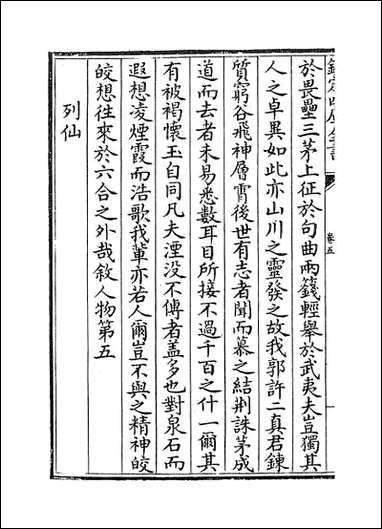 欽定四庫全書
卷五
於畏壘三茅上征於句曲兩籛輕舉於武夷夫豈獨其
人之卓異如此亦山川之靈發之故我郭許二真君鍊
質窮谷飛神層霄後世有志者聞而慕之結荆誅茅成
道而去者未易悉數耳目所接不過千百之什一爾其
有被褐懷玉自同凡夫湮没不傳者盖多也對泉石而
遐想凌煙霞而浩歌我輩亦若人爾豈不與之精神皎
皎想往來於六合之外哉敘人物第五
列仙